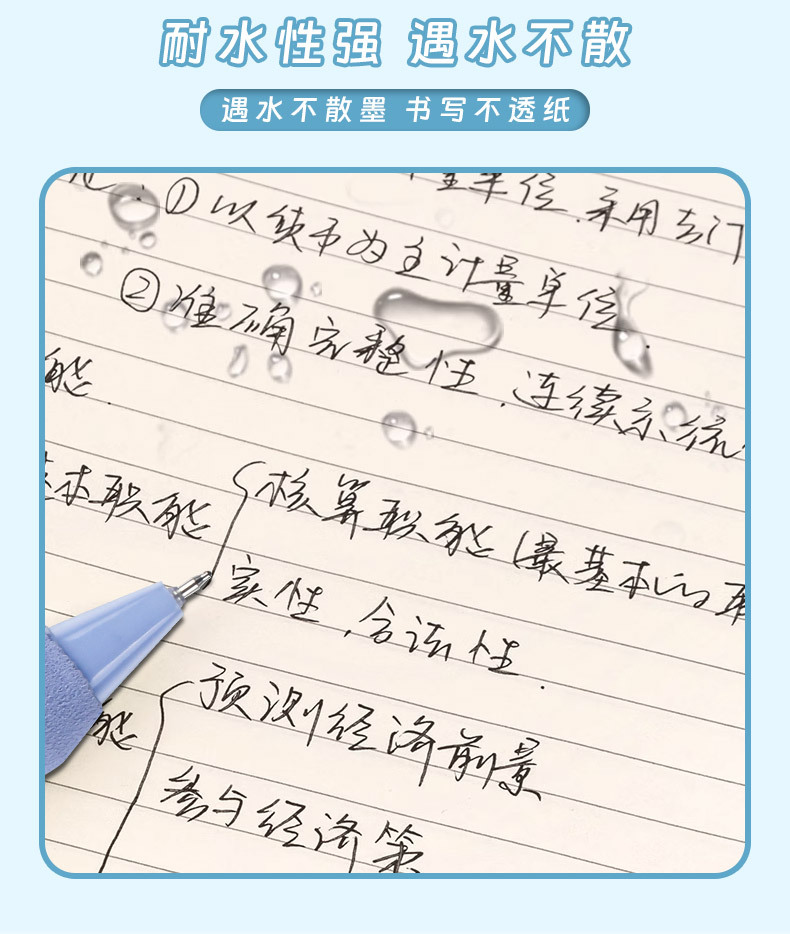 耐水性强 遇水不散
遇水不散墨 书写不透纸
单位.采用专门
①以货币为主计量单位.
②准确完整性.连续系统
能.
基本职能
核算职能(最基本的
实性,合法性.
预测经济前景
能
参与经济策